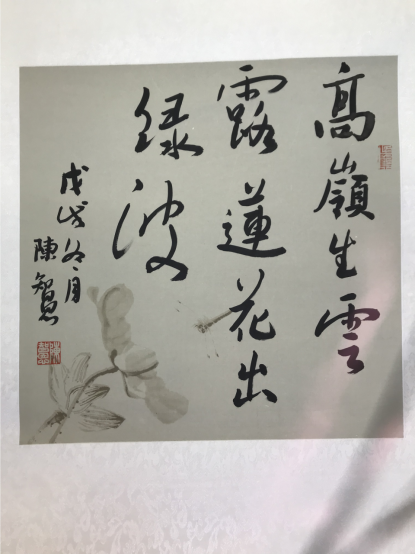 高嶺生雲
露蓮花出
绿波
戊戌冬月
陳智